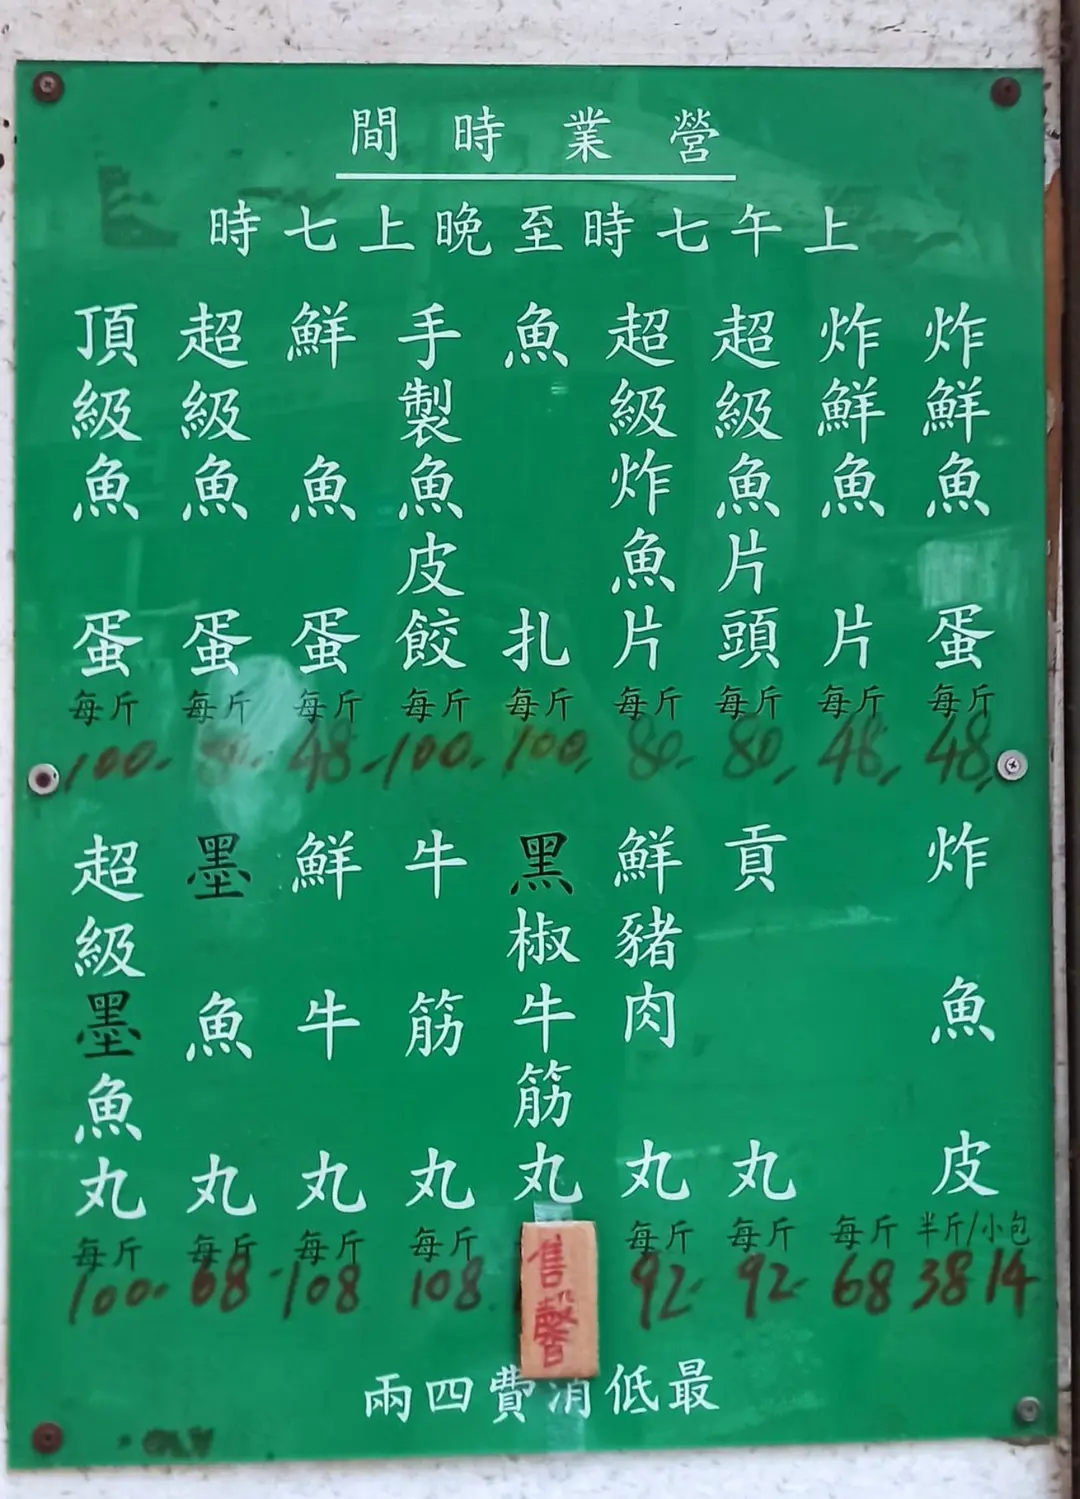 營業時間
上午七時至晚上七時
炸鮮魚蛋
每斤
48
炸鮮魚片
每斤
48
超級魚片頭
每斤
80
超級炸魚片
每斤
80
魚扎
每斤
100
手製魚皮餃
每斤
100
鮮魚蛋
每斤
48
超級魚蛋
每斤
頂級魚蛋
每斤
100
炸魚皮
每斤 半斤/小包
68 38 14
貢丸
每斤
92
鮮豬肉丸
每斤
92
黑椒牛筋丸
售罄
牛筋丸
每斤
108
鮮牛丸
每斤
108
墨魚丸
每斤
68
超級墨魚丸
每斤
100
最低消費四兩